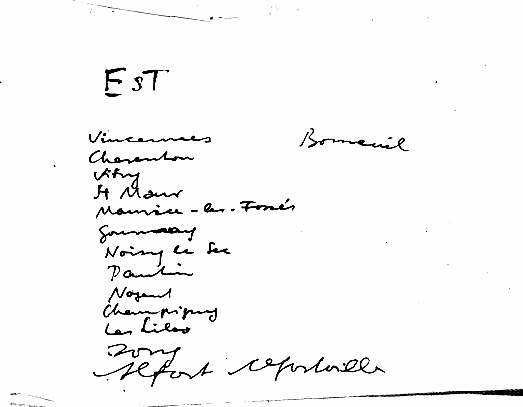 EST
Vincennes
Bonneuil
Charenton
Vitry
St Maur
Maurice-les-Fossés
Gournay
Noisy le Sec
Pantin
Nogent
Champigny
Les Lilas
Alfort Alfortville